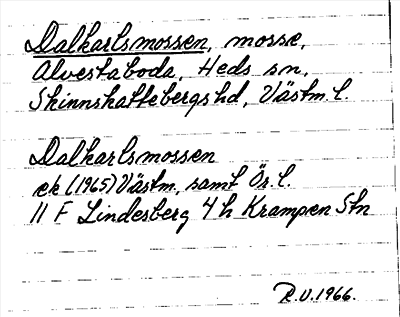 Dalkarlsmossen, mosse,
Alvestaboda, Heds sn,
Skinnskattebergs hd, Västm. l.
Dalkarlsmossen
ek (1965) Västm. samt Ör. l.
11 F Lindesberg 4 h Krampen Stn
R.U. 1966.